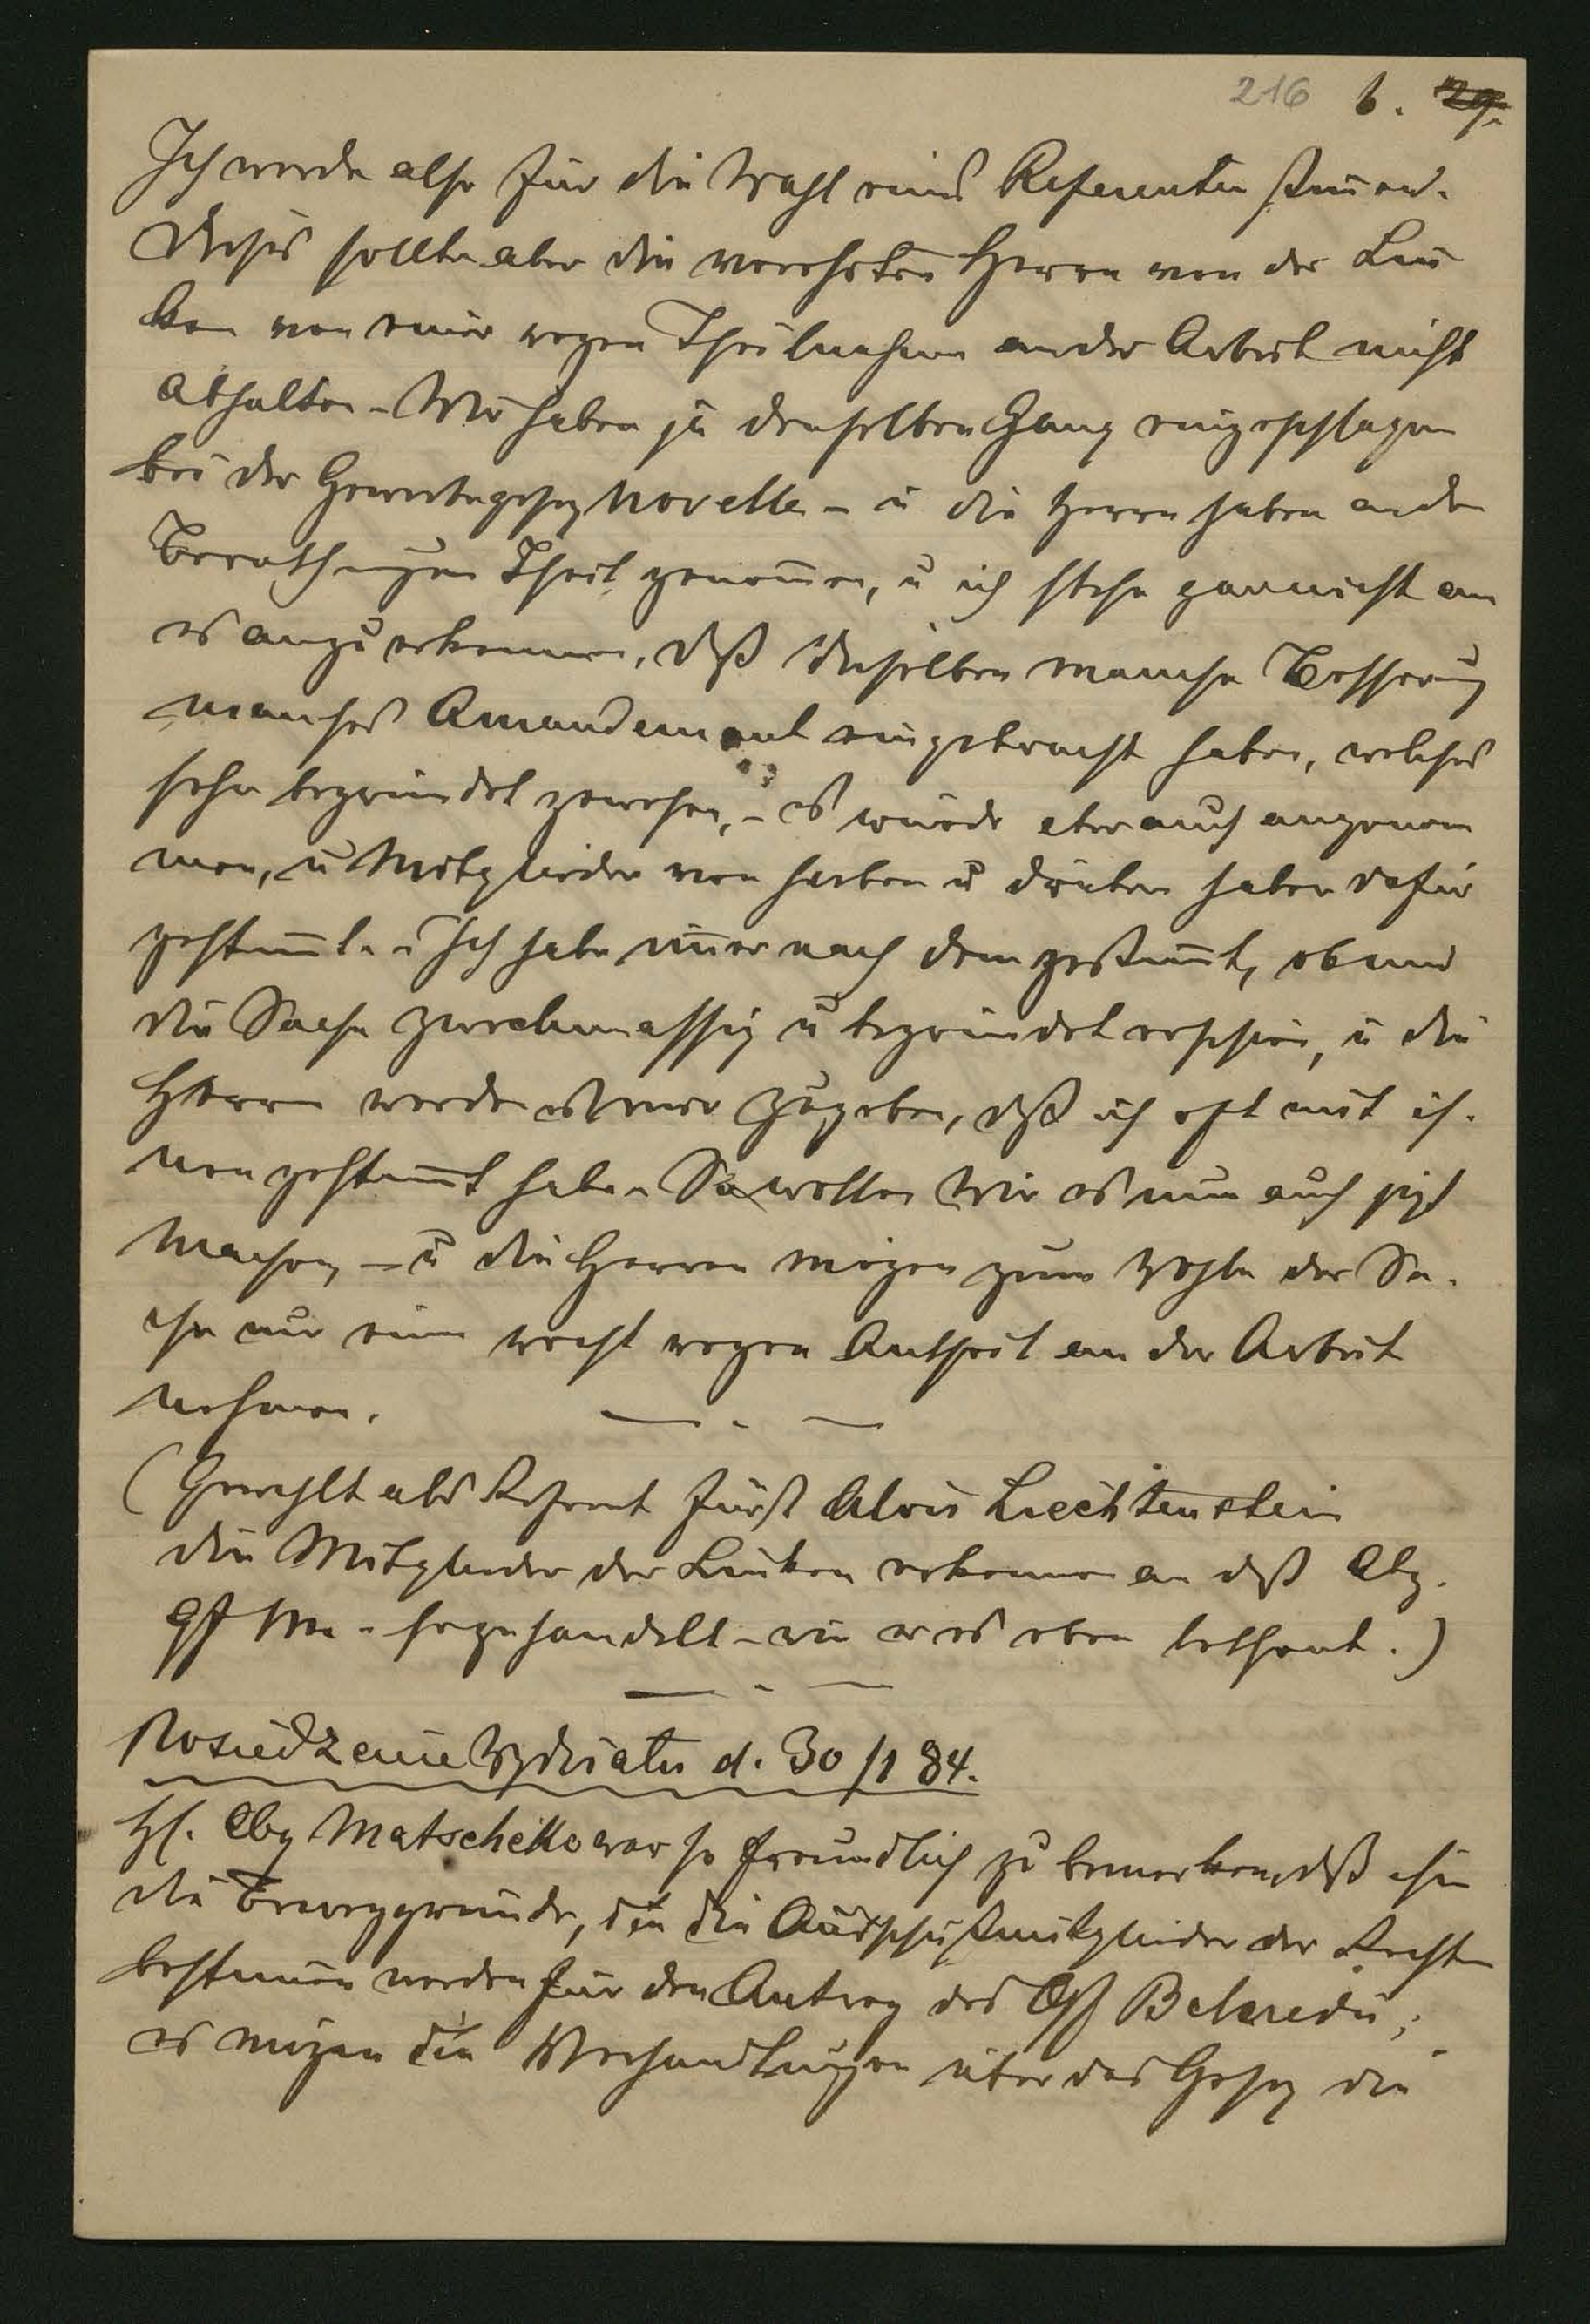 216 6. 29.
Ich werde also für die Wahl eines Referenten stimen.
Dieses sollte aber die verehrten Herrn von der Lin
ken von einer regen Theilnahme an der Arbeit nicht
abhalten. Wir haben ja denselben Gang eingeschlagen
bei der Gewerbegesetz Novelle - u die Herrn haben an den
Berathungen Theil genomen, u ich stehe gar nicht an
es anzuerkennen, daß dieselben manche Besserung
manches Amandement eingebracht haben, welches
sehr begründet gewesen, - es wurde aber auch angenom
men, u Mitglieder von herben u drüben haben dafür
gestimt. - Ich habe imer nach dem gestimt, ob mir
die Sache zweckmassig u begründet erschien, u die
Herrn werden es mir zugeben, daß ich oft mit ih.
nen gestimt habe. So wollen Wir es nun auch jetzt
machen, - u die Herren mögen zum Wohle der Sa.
che nur einen recht regen Antheil an der Arbeit
nehmen.
(Gewählt als Referent Fürst Alois Liechtenstein
die Mitglieder der Linken erkennen an daß Abg.
so gehandelt - wie er es eben bethont.)
Posiedzenie Wydziału d. 30/1 84.
H. Abg Matscheko war so freundlich zu bemerken, daß ihm
die Beweggründe, die die Ausschußmitglieder der Rechten
bestimen werden für den Antrag des Gf Belcredi;
es mögen die Verhandlungen über das Gesetz die